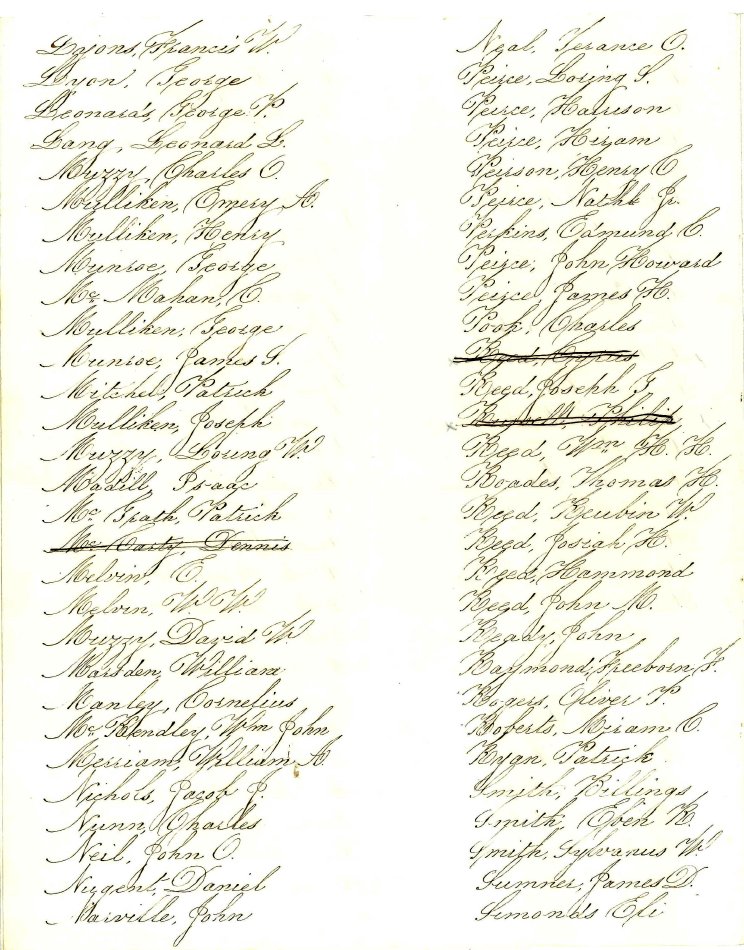 Lyons, Francis W.
Lyon, George
Leonards, George P.
Lang, Leonard L.
Muzzy, Charles O.
Mulliken, Emery A.
Mulliken, Henry
Munroe, George
Mc Mahan, C.
Mulliken, George
Munroe, James S.
Mitchel, Patrick
Mulliken, Joseph
Muzzy, Loring W.
Madill, Isaac
Mc Grath, Patrick
Mc Carty Dennis
Melvin, E.
Melvin, W. W.
Muzzy, David W.
Marsden, William
Manley, Cornelius
Mc Kendley, Wm John
Merriam, William A.
Nichols, Jacob J.
Nunn, Charles
Neil, John O.
Nugent, Daniel
Marville, John
Neal, Terance O.
Peirce, Loring S.
Peirce, Harrison
Peirce, Hiram
Peirson, Henry C
Peirce, Nathl Jr.
Perkins, Edmund C.
Peirce, John Howard
Peirce, James H.
Pook, Charles
Reed, Cyrus
Reed, Joseph F
Russell, Philip
Reed, Wm H. H.
Roades, Thomas H.
Reed, Reubin W.
Reed, Josiah H.
Reed, Hammond
Reed, John M.
Ready, John
Raymond, Freeborn F.
Rogers, Oliver P.
Roberts, Miram C.
Ryan, Patrick
Smith, Billings
Smith, Eben R.
Smith, Sylvanus W.
Sumner, James D.
Simonds Eli